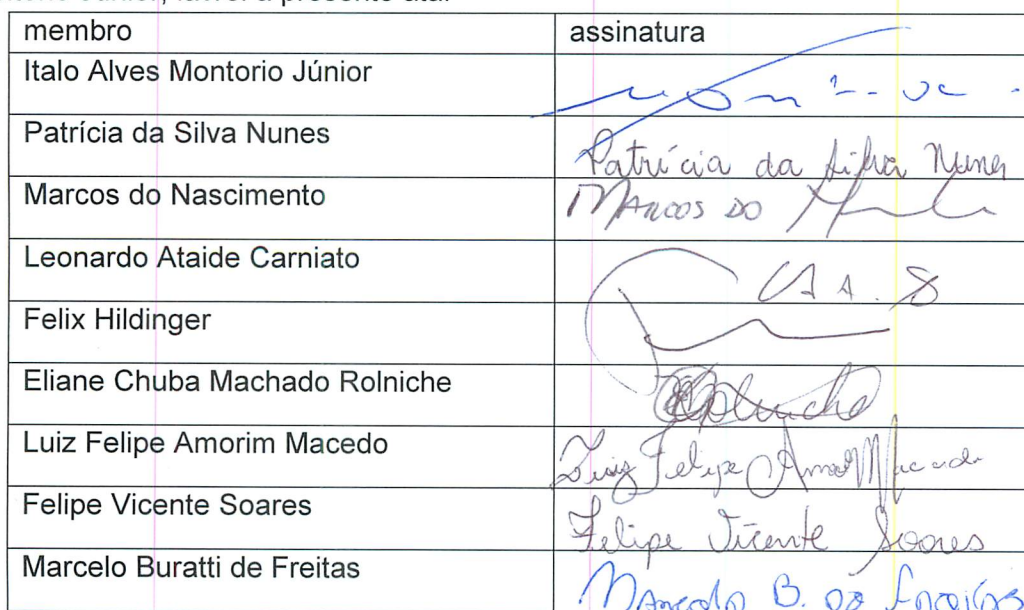 Júnior, lavrei a presente ata.
membro assinatura
Italo Alves Montorio Júnior
Patrícia da Silva Nunes Patrícia da Silva Nunes
Marcos do Nascimento Marcos do
Leonardo Ataide Carniato
Felix Hildinger
Eliane Chuba Machado Rolniche
Luiz Felipe Amorim Macedo Luiz Felipe Amorim Macedo
Felipe Vicente Soares Felipe Vicente Soares
Marcelo Buratti de Freitas Marcelo B. de Freitas